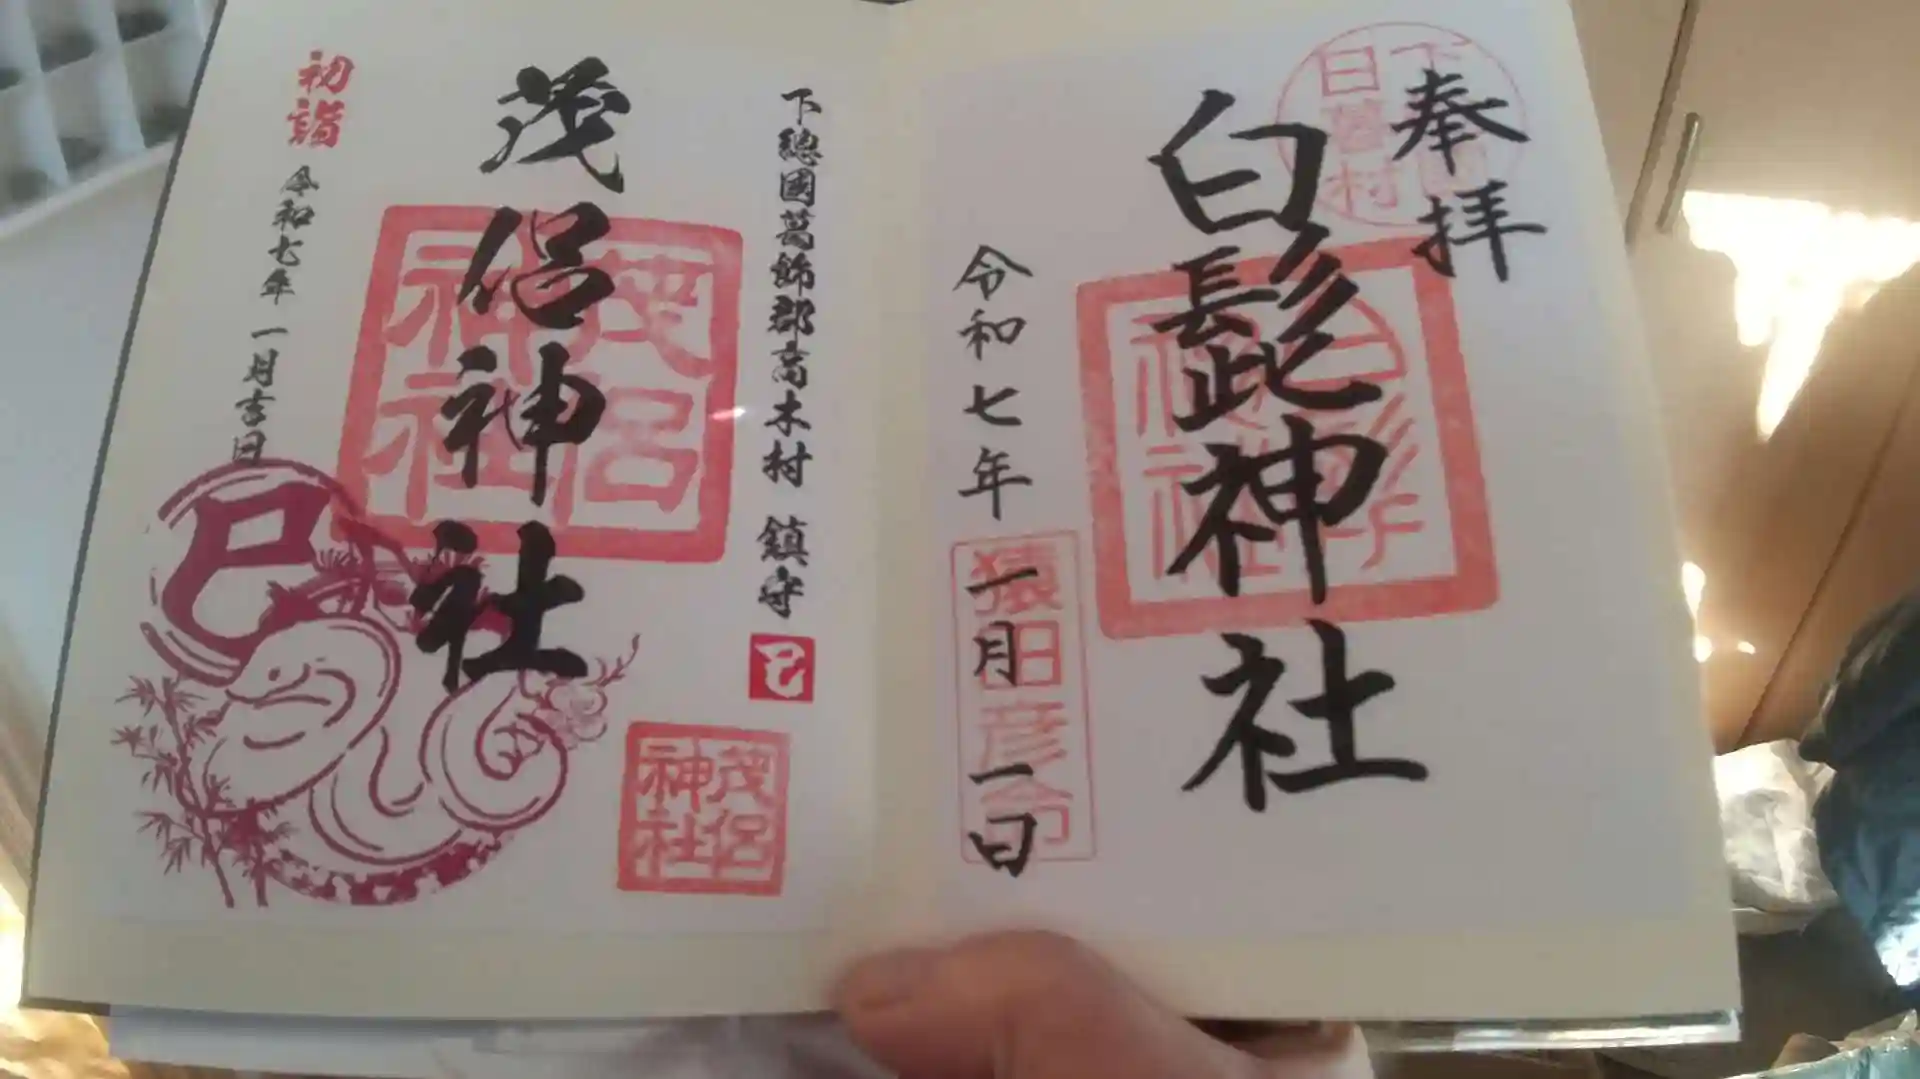 奉拝
日暮村
白髭神社
令和七年
一月一日
猿田彦命
下總國葛飾郡高木村 鎮守
巳
茂侶神社
茂侶神社
茂侶神社
初詣
令和七年 一月吉日
巳